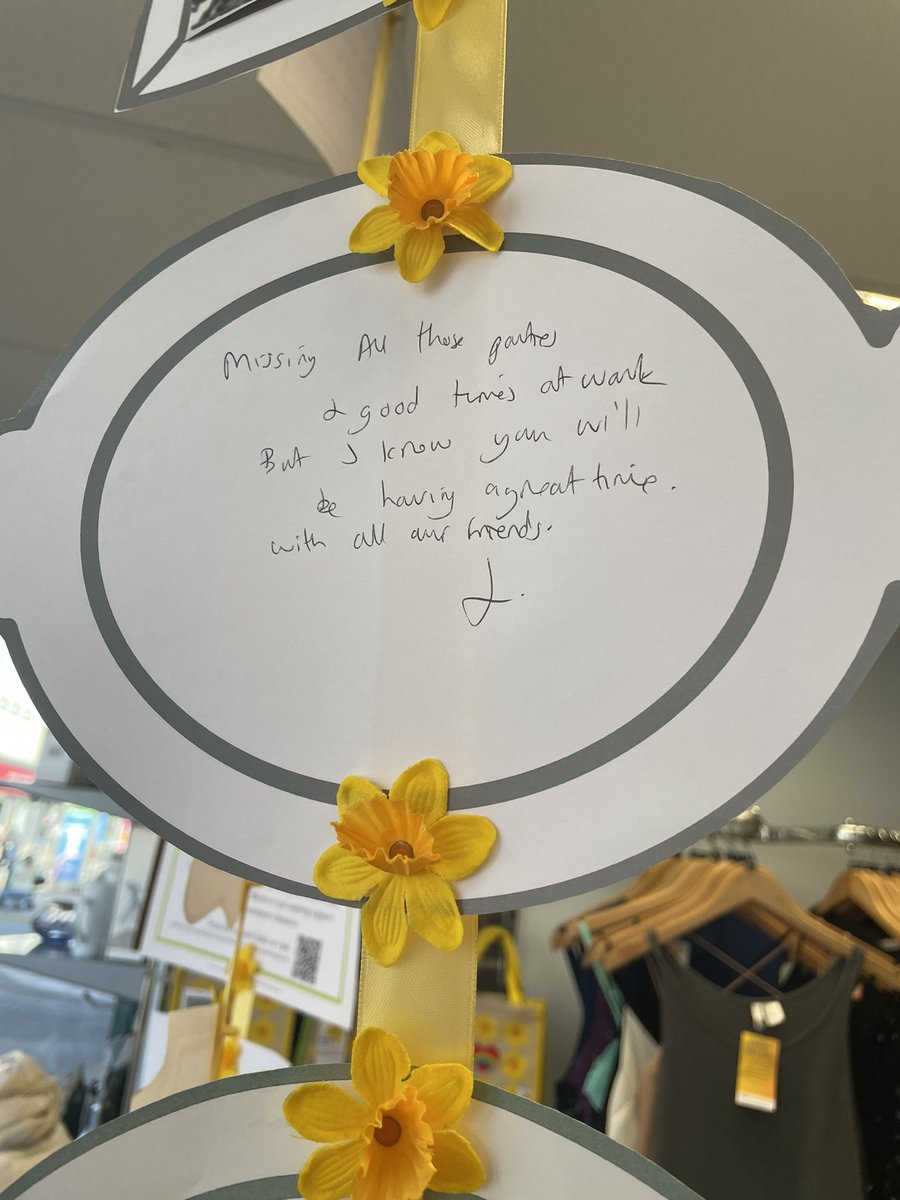 Missing All those parties
& good times at work
But I know you will
be having a great time.
with all our friends.
J.